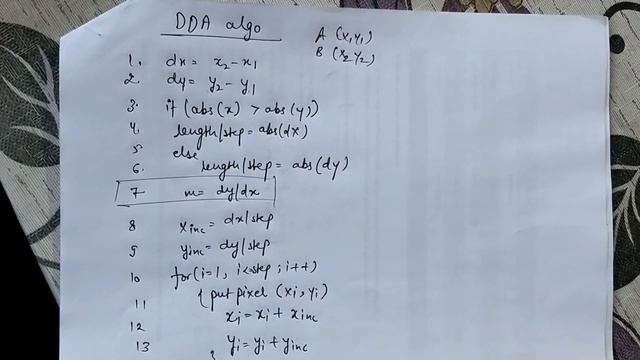 DDA algo
A (x,y,)
B (x2 y2)
1. dx = x2 - x1
2. dy = y2 - y1
3. if (abs(x) > abs(y))
4. length/step = abs(dx)
5 else
6. length/step = abs(dy)
7 m = dy/dx
8 xinc = dx/step
9 yinc = dy/step
10 for(i=1, i<=step ; i++)
11 { put pixel (xi, yi)
12 xi = xi + xinc
13 yi = yi + yinc
}